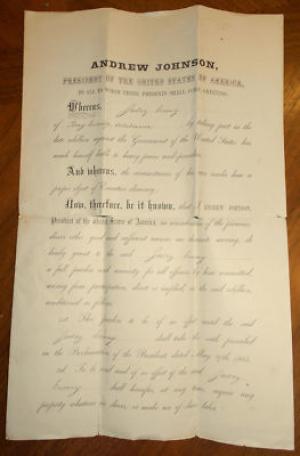 ANDREW JOHNSON,
PRESIDENT OF THE UNITED STATES OF AMERICA,
TO ALL TO WHOM THESE PRESENTS SHALL COME, GREETING:
Whereas,
of by taking part in the
late rebellion against the Government of the United States has
made himself liable to heavy pains and penalties;
And whereas, the circumstances of his case render him a
proper object of Executive clemency;
Now, therefore, be it known, that I, ANDREW JOHNSON,
President of the United States of America, in consideration of the premises,
divers other good and sufficient reasons me thereunto moving, do
hereby grant to the said
a full pardon and amnesty for all offences by him committed,
arising from participation, direct or implied, in the said rebellion,
conditioned as follows:
1st. This pardon to be of no effect until the said
shall take the oath prescribed
in the Proclamation of the President, dated May 29th, 1865.
2d. To be void and of no effect if the said
shall hereafter, at any time, acquire any
property whatever in slaves, or make use of slave labor.